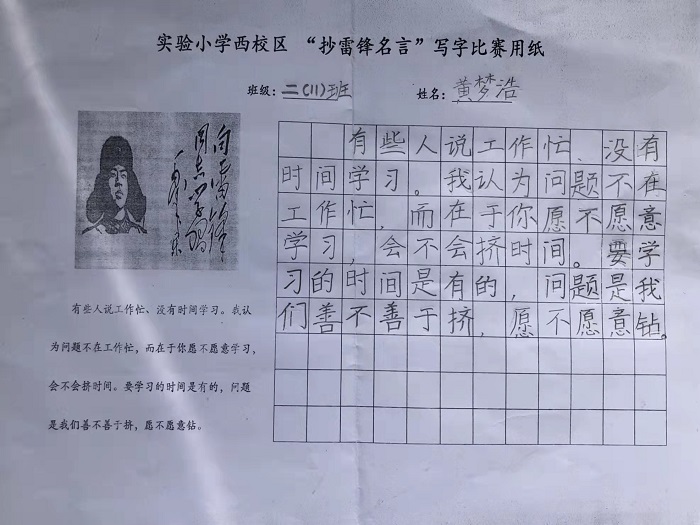 实验小学西校区 “抄雷锋名言”写字比赛用纸
班级：二(11)班 姓名：黄梦浩
向雷锋
同志学习
毛泽东
有些人说工作忙、没有时间学习。我认
为问题不在工作忙，而在于你愿不愿意学习，
会不会挤时间。要学习的时间是有的，问题
是我们善不善于挤，愿不愿意钻。
有些人说工作忙、没有
时间学习。我认为问题不在
工作忙，而在于你愿不愿意
学习，会不会挤时间。要学
习的时间是有的，问题是我
们善不善于挤，愿不愿意钻。